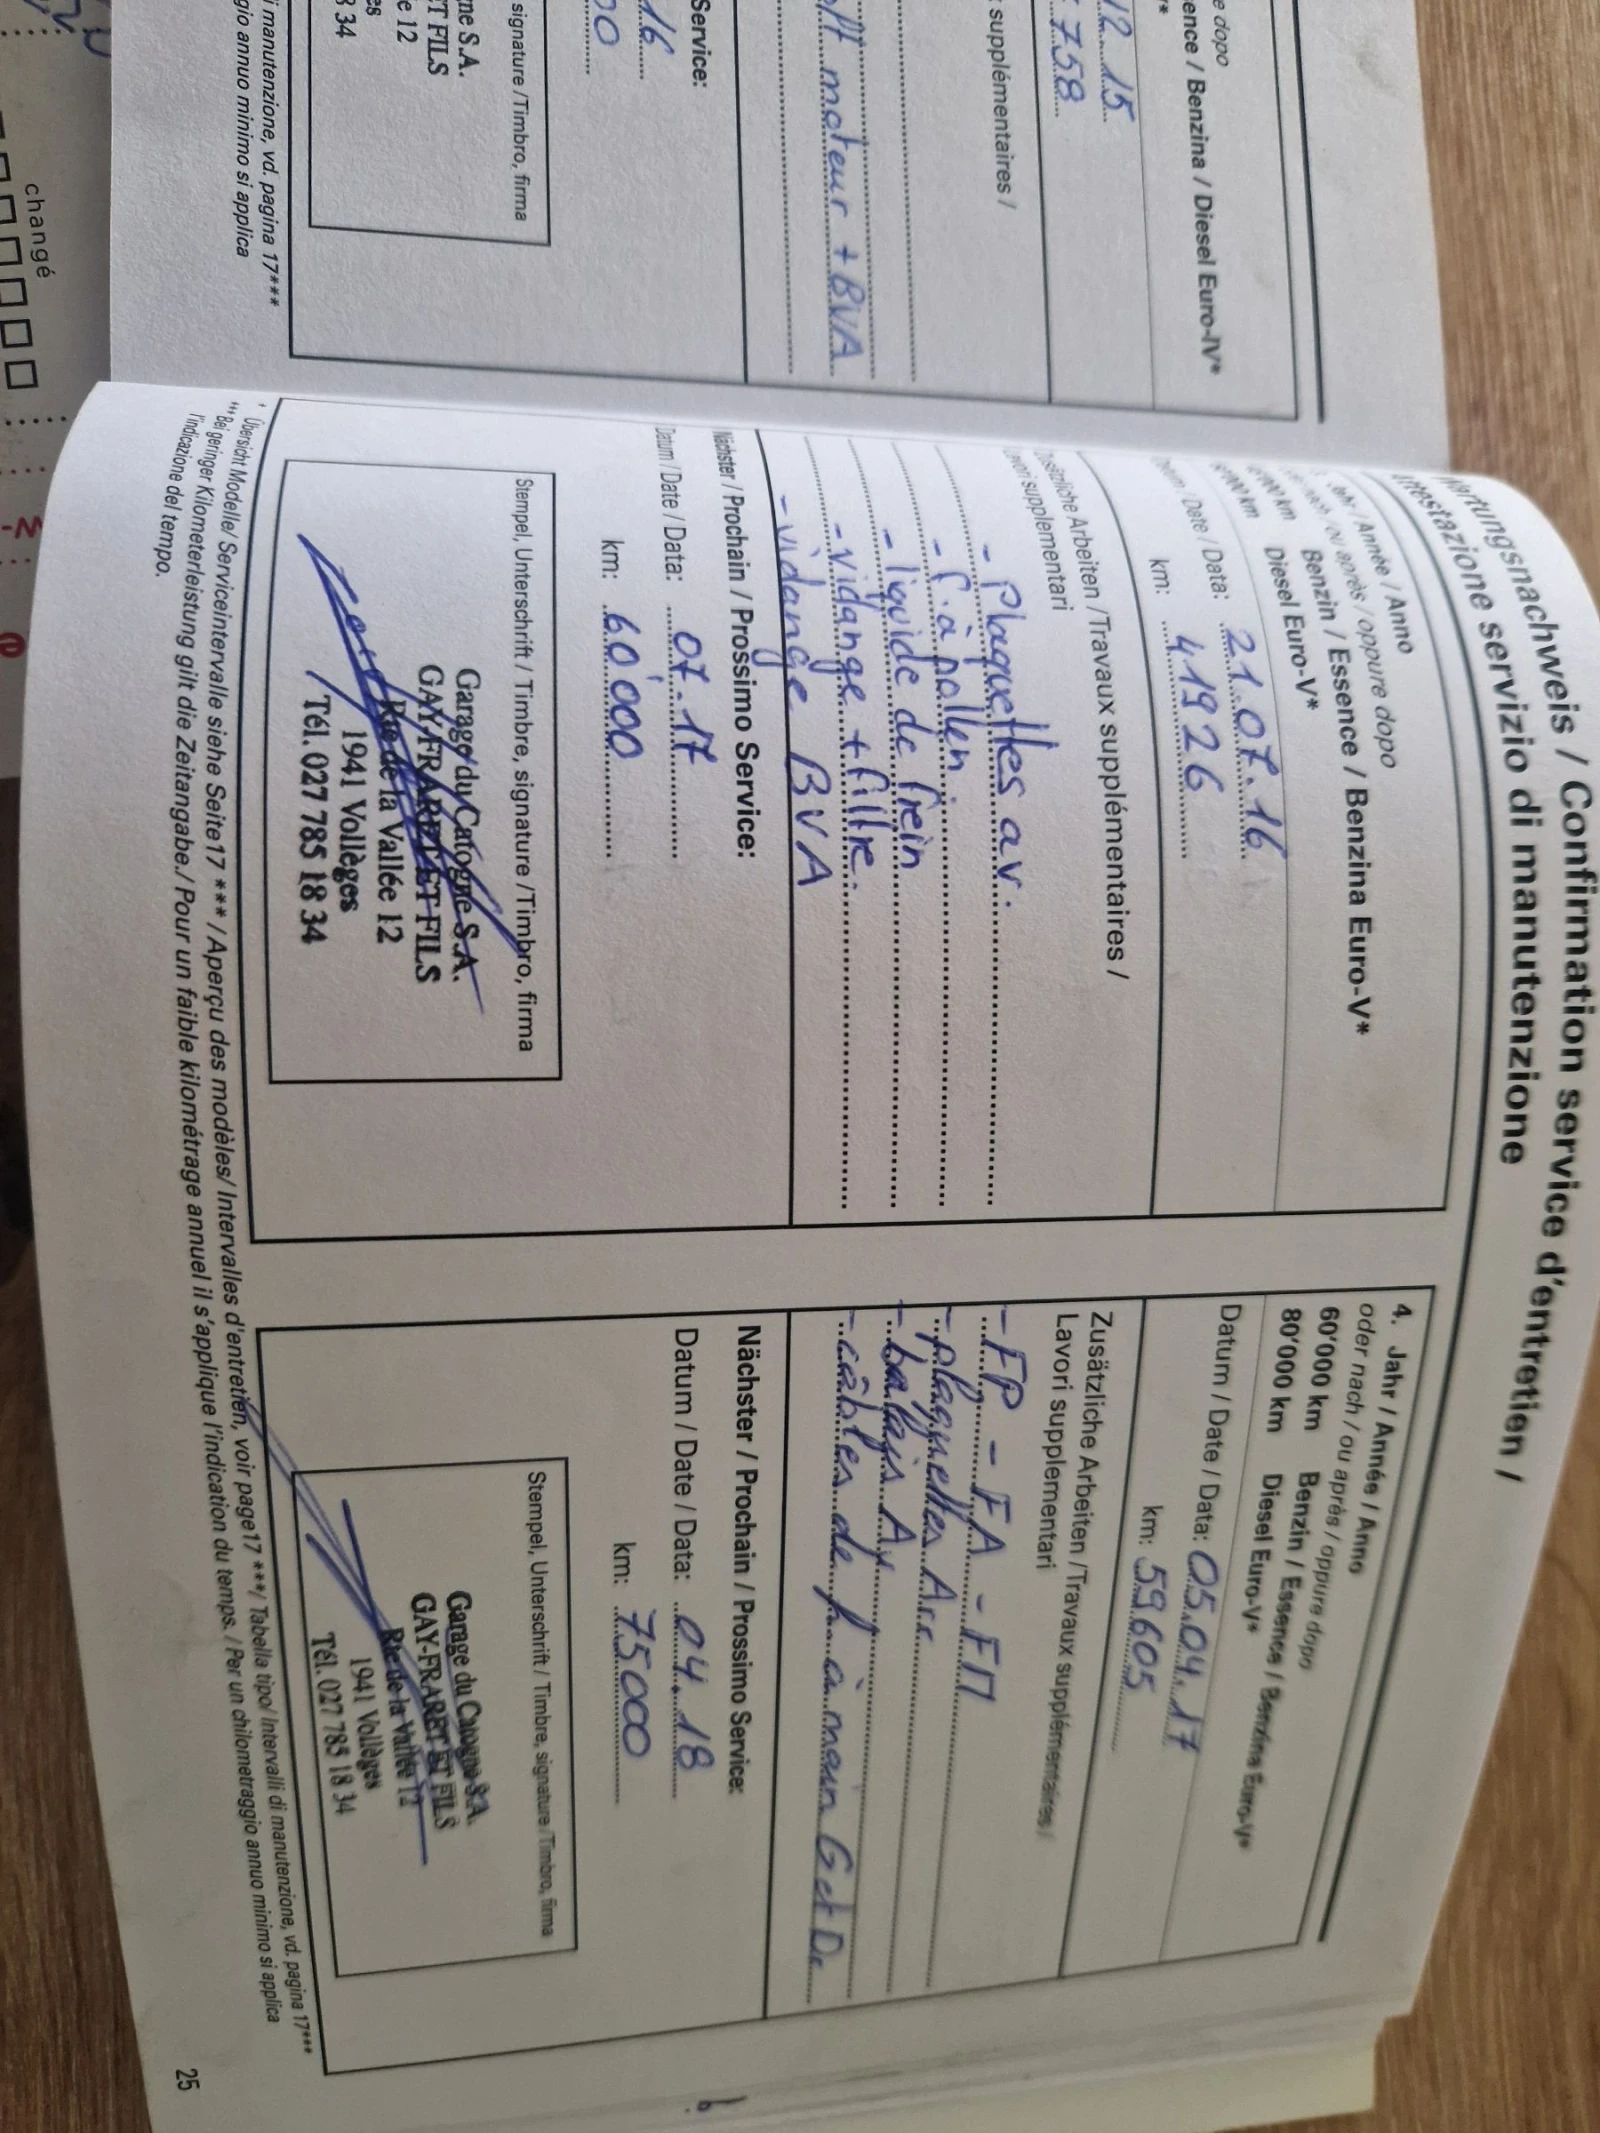 e dopo
ence / Benzina / Diesel Euro-IV*
12.15
758
supplémentaires /
moteur + BVA
Service:
16
signature / Timbro, firma
ne S.A.
ET FILS
e 12
es
8 34
i manutenzione, vd. pagina 17***
gio annuo minimo si applica
changé
Wartungsnachweis / Confirmation service d'entretien /
Attestazione servizio di manutenzione
Jahr / Année / Anno
ou après / oppure dopo
Benzin / Essence / Benzina Euro-V*
Diesel Euro-V*
Date / Data: 21.07.16
km: 41926
Zusätzliche Arbeiten / Travaux supplémentaires /
Lavori supplementari
- plaquettes av.
- f. à pollen
- liquide de frein
- vidange + filtre.
- vidange BVA
Nächster / Prochain / Prossimo Service:
Datum / Date / Data: 07.17
km: 60'000
Stempel, Unterschrift / Timbre, signature / Timbro, firma
Garage du Catogne S.A.
GAY-FRARET ET FILS
Rte de la Vallée 12
1941 Vollèges
Tél. 027 785 18 34
4. Jahr / Année / Anno
oder nach / ou après / oppure dopo
60'000 km Benzin / Essence / Benzina Euro-V*
80'000 km Diesel Euro-V*
Datum / Date / Data: 05.04.17
km: 59605
Zusätzliche Arbeiten / Travaux supplémentaires /
Lavori supplementari
- FP - FA - FM
- plaquettes Arr
- balais Av
- câbles de f. à main G et D
Nächster / Prochain / Prossimo Service:
Datum / Date / Data: 04.18
km: 75000
Stempel, Unterschrift / Timbre, signature / Timbro, firma
Garage du Catogne S.A.
GAY-FRARET ET FILS
Rte de la Vallée 12
1941 Vollèges
Tél. 027 785 18 34
* Übersicht Modelle/ Serviceintervalle siehe Seite 17 *** / Aperçu des modèles/ Intervalles d'entretien, voir page 17 ***/ Tabella tipo/ Intervalli di manutenzione, vd. pagina 17***
*** Bei geringer Kilometerleistung gilt die Zeitangabe./ Pour un faible kilométrage annuel il s'applique l'indication du temps. / Per un chilometraggio annuo minimo si applica
l'indicazione del tempo.
25